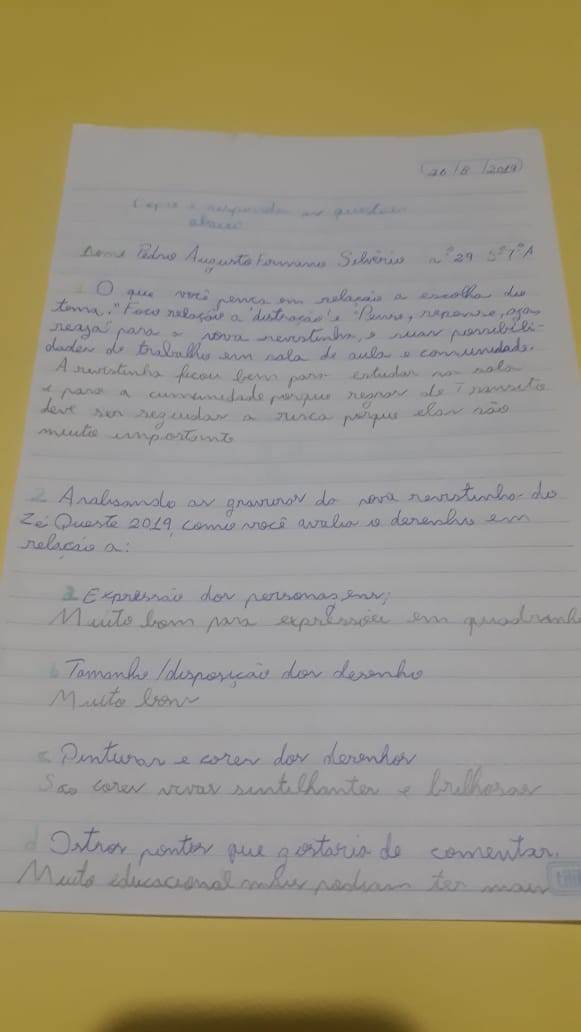 26/8/2019
Copie e responda as questões
abaixo
Nome Pedro Augusto Silvério nº 29 5º 1º A
1 O que você pensa em relação a escolha do
tema, "Foco relação a distração" e "Pense, repense, aja,
reaja" para a nova revestinha, e suas possibili-
dades de trabalho em sala de aula e comunidade.
A revistinha ficou bem para estudar na sala
e para a cumunidade porque regras de Transito
deve ser seguidas a risca porque elas são
muito importante
2 Analisando as gravuras da nova revistinha do
Zé Queste 2019, como você avalia o desenho em
relação a:
a Expressão dos personagens;
Muito bom para expressões em quadranh
b Tamanho/disposição dos desenho
Muito bom
c Pinturas e cores dos desenhos
São cores vivas sintilhantes e brilhosas
d Ostros pontos que gostaria de comentar.
Muito educacional mais podiam ter mais